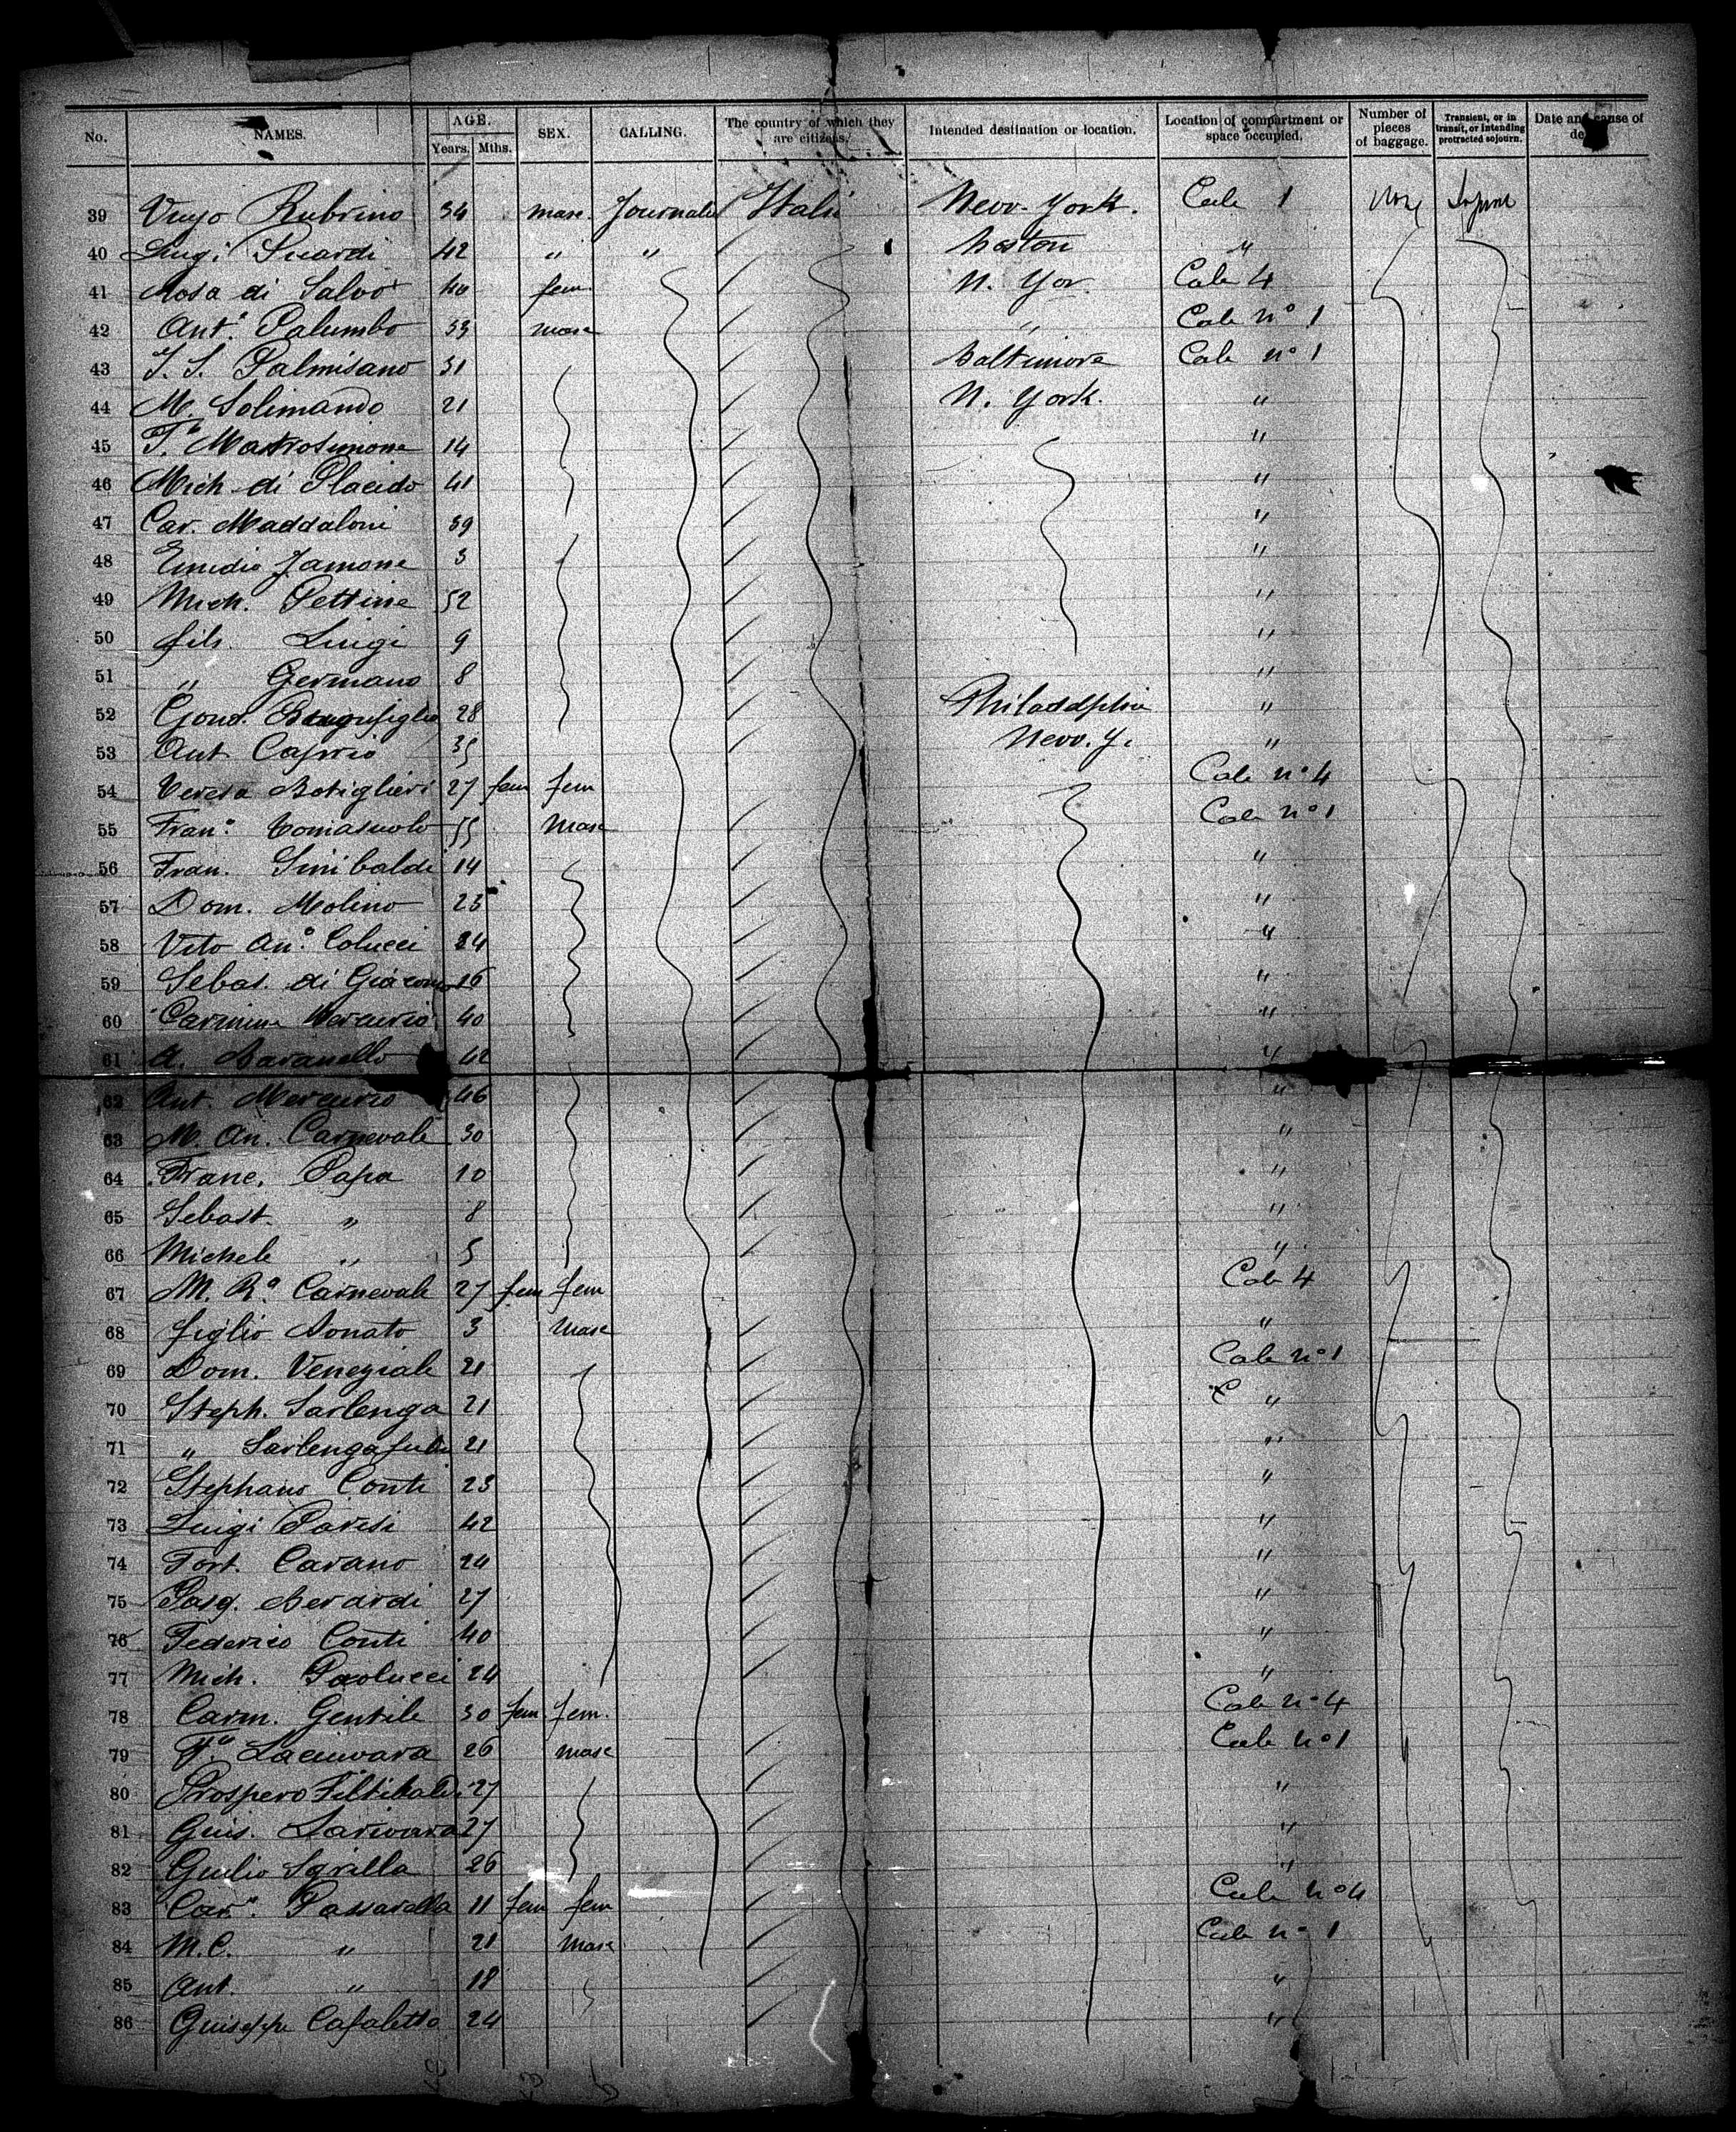 No. NAMES. AGE. Years. Mths. SEX. CALLING. The country of which they are citizens. Intended destination or location. Location of compartment or space occupied. Number of pieces of baggage. Transient, or in transit, or intending protracted sojourn. Date and cause of de
39 Rubrino 34 masc. Italie New-York. Cale 1
40 Luigi Picardi 42 " " Boston "
41 Rosa di Salvo 40 fem. N. Yor. Cale 4
42 Ant.o Palumbo 33 masc " Cale no 1
43 Palmisano 31 Baltimore Cale no 1
44 M. Solimando 21 N. York. "
45 Mastrosimone 14 "
46 Mich di Placido 41 "
47 Car. Maddaloni 39 "
48 Emidio Jamone 3 "
49 Mich. Pettine 52 "
50 fils. Luigi 9 "
51 " Germano 8 "
52 28 Philadelphia "
53 Ant. Caprio 35 New. Y. "
54 Botiglieri 27 fem fem Cale no 4
55 Fran.o Tomasuolo 55 Masc Cale no 1
56 Fran. Sinibaldi 14 "
57 Dom. Molino 23 "
58 Vito An.o Colucci 24 "
59 Sebas. di Giacomo 16 "
60 Carmine Mercurio 40 "
61 A. Baranello 42 "
62 Ant. Mercurio 46 "
63 M. An. Carnevale 30 "
64 Franc. Papa 10 "
65 Sebast. " 8 "
66 Michele " 5 "
67 M. R.a Carnevale 27 fem fem Cale 4
68 figlio Donato 3 Masc "
69 Dom. Veneziale 21 Cale no 1
70 Steph. Sarlenga 21 "
71 " Sarlenga 21 "
72 Stephano Conti 23 "
73 Luigi Parisi 42 "
74 Fort. Carano 24 "
75 Pasq. Berardi 27 "
76 Federico Conti 40 "
77 Mich. Paolucci 24 "
78 Carm. Gentile 30 fem fem. Cale no 4
79 26 masc Cale no 1
80 Prospero 27 "
81 Gius. 27 "
82 Guilio Sgrilla 26 "
83 Car.a Passarella 11 fem fem Cale no 4
84 M. C. " 21 Masc Cale no 1
85 Ant. " 18 "
86 Guiseppe Cafaletto 24 "